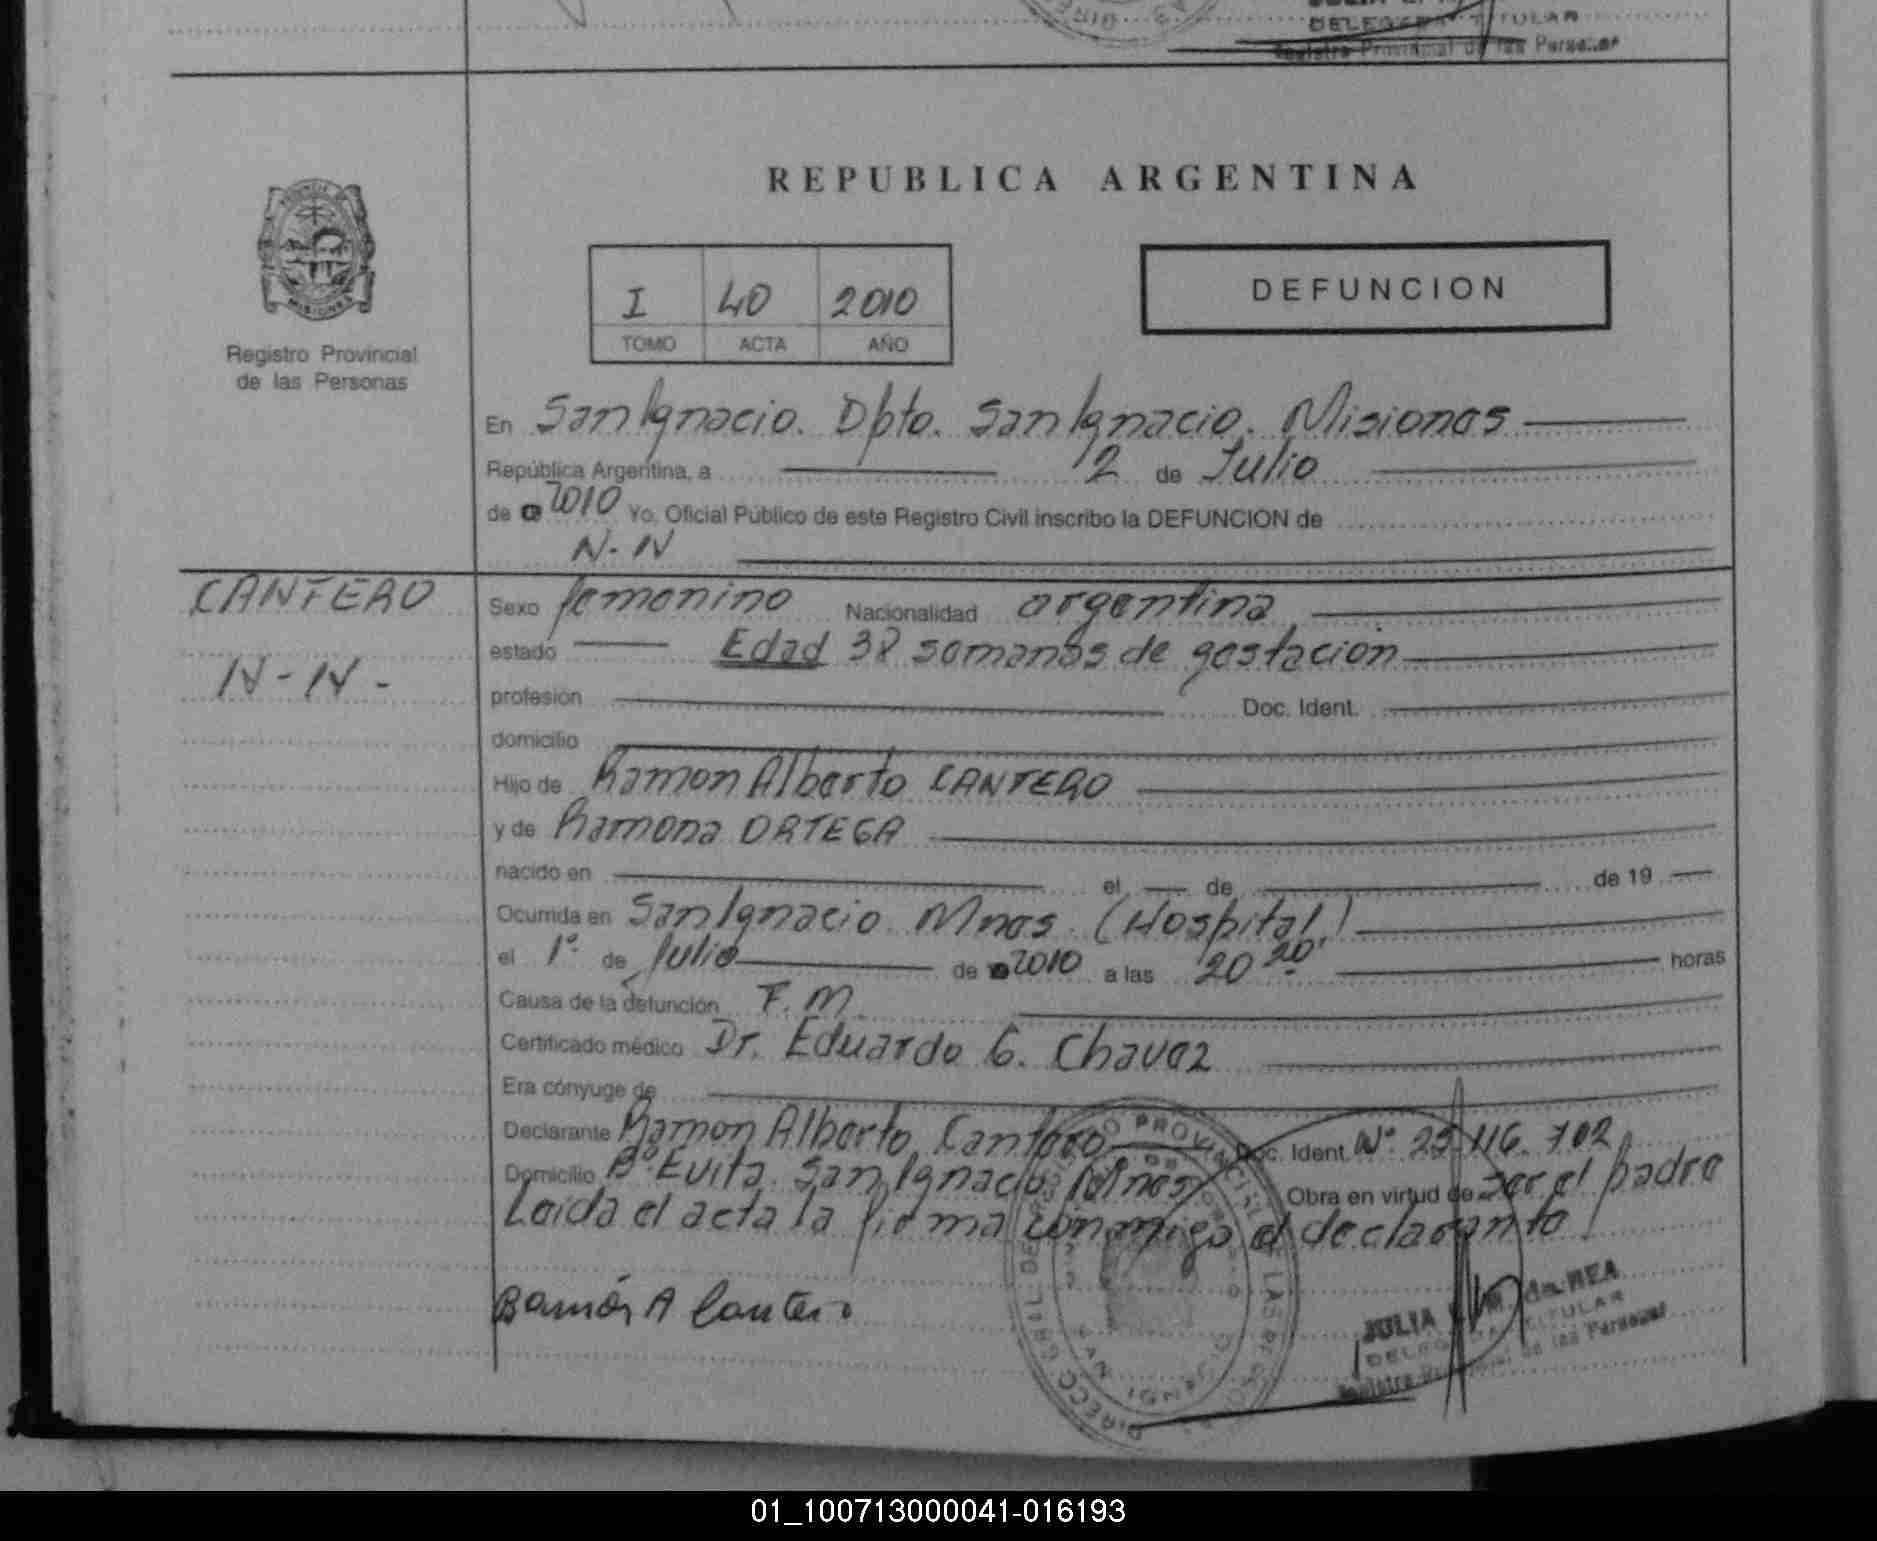 DELEGADA TITULAR
Registro Provincial de las Personas
REPUBLICA ARGENTINA
I 40 2010
TOMO ACTA AÑO
DEFUNCION
MISIONES
Registro Provincial
de las Personas
En San Ignacio. Dpto. San Ignacio. Misiones
República Argentina, a 2 de Julio
de 2010 Yo, Oficial Público de este Registro Civil inscribo la DEFUNCION de
N-N
CANTERO
N-N-
Sexo femenino Nacionalidad argentina
estado Edad 38 semanas de gestación
profesión Doc. Ident.
domicilio
Hijo de Ramon Alberto CANTERO
y de Ramona ORTEGA
nacido en el de de 19
Ocurrida en San Ignacio Mnes (Hospital)
el 1º de Julio de 2010 a las 20 20' horas
Causa de la defunción F.M.
Certificado médico Dr. Eduardo G. Chavez
Era cónyuge de
Declarante Ramon Alberto Cantero Doc. Ident. Nº 25.116.702
Domicilio Bº Evita San Ignacio Mnes Obra en virtud de ser el padre
Leida el acta la firma conmigo el declarante
Ramón A Cantero
JULIA M. de REA
DELEGADA TITULAR
Registro Provincial de las Personas
01_100713000041-016193